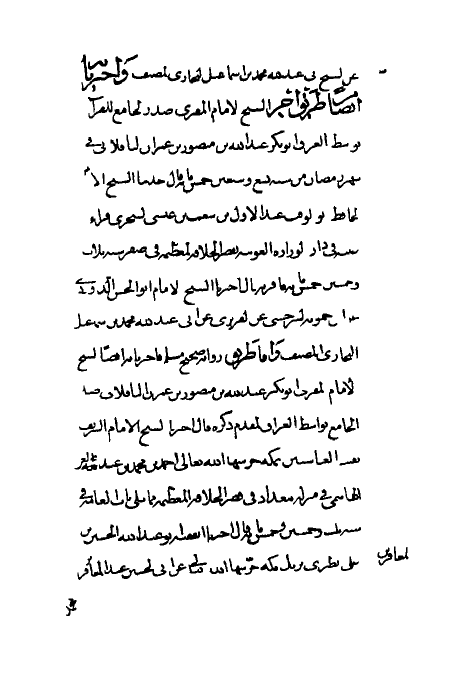 عن الشيخ ابي عبد الله محمد بن اسماعيل البخاري المصنف واخبرنا
ايضا من طريق اخر الشيخ الامام المقري صدر الجامع للقرآن
بواسط العراق ابو بكر عبد الله بن منصور بن عمران الباقلاني في
شهر رمضان من سنة تسع وسبعين خمس مائة قال حدثنا الشيخ الامام
الحافظ ابو الوقت عبد الاول بن عيسى السجزي قراءة
عليه في دار الوزارة العونية بقصر الخلافة المعظمة في صفر سنة ثلاث
وخمسين خمس مائة قال اخبرنا الشيخ الامام ابو الحسن الداودي
حمويه السرخسي عن الفربري عن ابي عبد الله محمد بن اسماعيل
البخاري المصنف واما طريق رواية صحيح مسلم فاخبرنا به ايضا الشيخ
الامام المقري ابو بكر عبد الله بن منصور بن عمران الباقلاني صدر
الجامع بواسط العراق المقدم ذكره قال اخبرنا الشيخ الامام الشريف
نقيب العباسيين بمكة حرسها الله تعالى احمد بن محمد بن عبد العزيز
الهاشمي في منزله ببغداد في قصر الخلافة المعظمة مما يلي باب العامة في
سنة ثلاث وخمسين وخمس مائة قال اخبرنا ابو عبد الله الحسين بن
علي الطبري نزيل مكة حرسها الله قال عن ابي الحسين عبد الغافر
الغافر بن